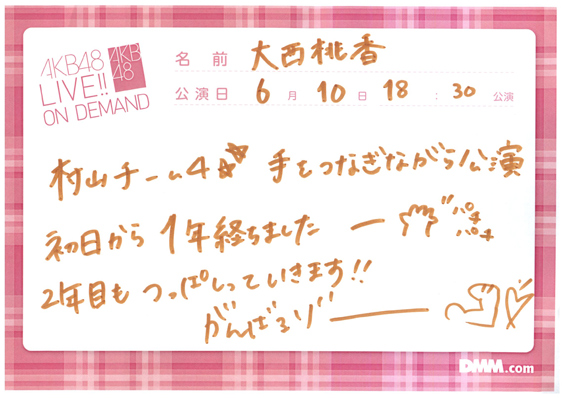 AKB48
LIVE!!
ON DEMAND
AKB48
名前 大西桃香
公演日 6月10日 18:30 公演
村山チーム4☆☆ 手をつなぎながら公演
初日から1年経ちました ー パチパチ
2年目もつっぱしっていきます!!
がんばるゾー
DMM.com